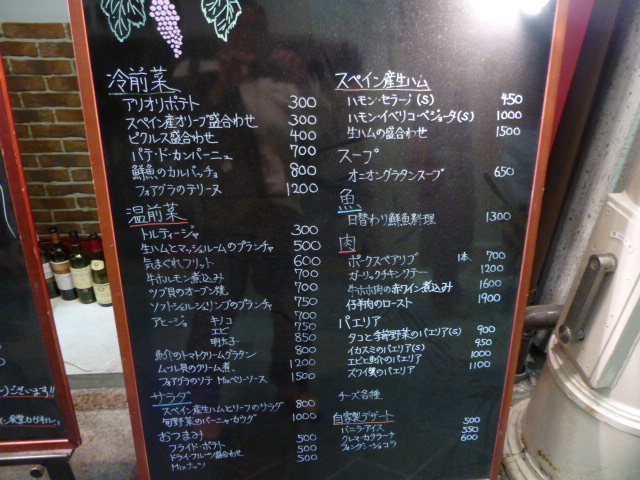 冷前菜
アリオリポテト 300
スペイン産オリーブ盛合わせ 300
ピクルス盛合わせ 400
パテ・ド・カンパーニュ 700
鮮魚のカルパッチョ 800
フォアグラのテリーヌ 1200
温前菜
トルティージャ 300
生ハムとマッシュルームのプランチャ 500
気まぐれフリット 600
牛ホルモン煮込み 700
ツブ貝のオーブン焼 700
ソフトシェルシュリンプのプランチャ 750
アヒージョ キノコ 700
エビ 750
明太子 850
魚介のトマトクリームグラタン 800
ムール貝のクリーム煮 1200
フォアグラのソテ Mixベリーソース 1500
サラダ
スペイン産生ハムとリーフのサラダ 800
旬野菜のバーニャ・カウダ 1000
おつまみ
フライド・ポテト 500
ドライ・フルーツ盛合わせ 500
Mixナッツ 500
スペイン産生ハム
ハモン・セラーノ(S) 450
ハモン・イベリコ・ベジョータ(S) 1000
生ハムの盛合わせ 1500
スープ
オニオングラタンスープ 650
魚
日替わり鮮魚料理 1300
肉
ポークスペアリブ 1本 700
ガーリックチキンソテー 1200
牛ホホ肉の赤ワイン煮込み 1600
仔羊肉のロースト 1900
パエリア
タコと季節野菜のパエリア(S) 900
イカスミのパエリア(S) 950
エビと魚介のパエリア(S) 1000
ズワイ蟹のパエリア 1100
チーズ各種
自家製デザート 500
バニラ・アイス 550
クレマ・カタラーナ 600
フォンダンショコラ
ございます!!